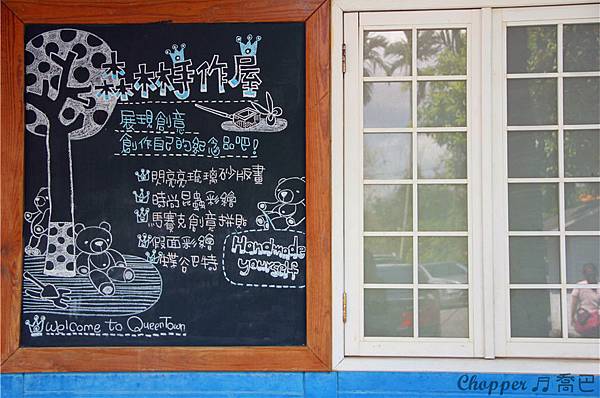 森林手作屋
展現創意
創作自己的紀念品吧!
閃亮亮琉璃砂版畫
時尚昆蟲彩繪
馬賽克創意拼貼
假面彩繪
蝶谷巴特
Handmade
yourself
Welcome to QueenTown
Chopper ♫ 喬巴